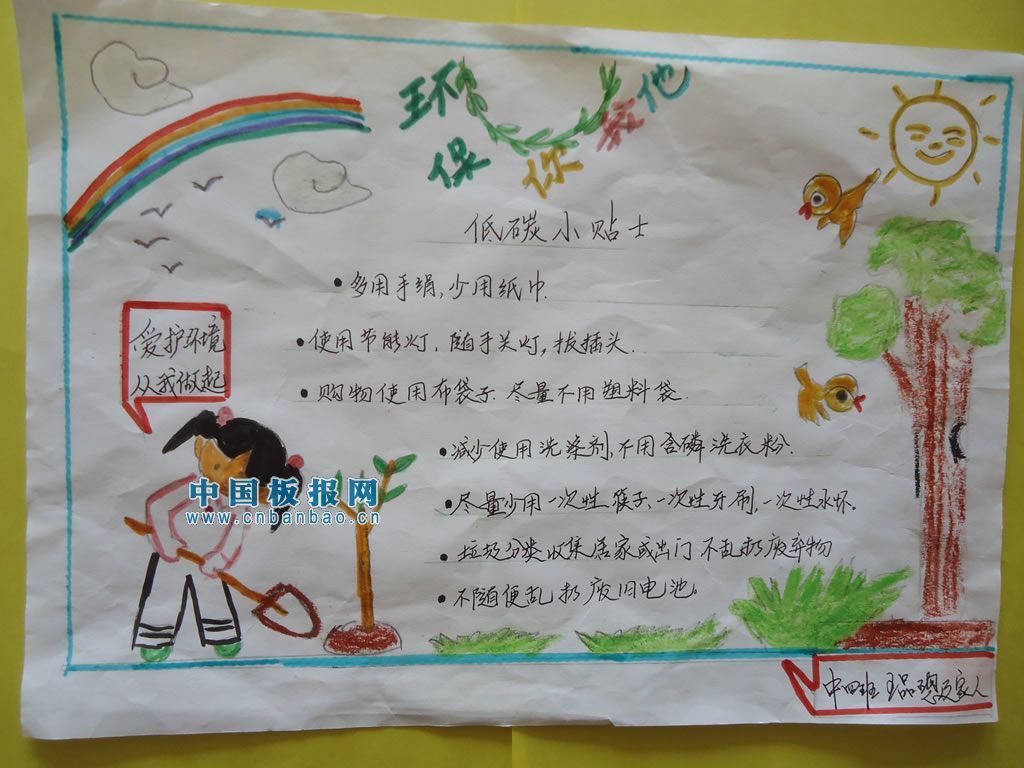 环保 你 他
低碳小贴士
• 多用手绢,少用纸巾.
• 使用节能灯,随手关灯,拔插头.
• 购物使用布袋子.尽量不用塑料袋.
• 减少使用洗涤剂,不用含磷洗衣粉.
• 尽量少用一次性筷子、一次性牙刷,一次性水杯。
• 垃圾分类收集居家或出门不乱扔废弃物
• 不随便乱扔废旧电池。
爱护环境
从我做起
中国板报网
www.cnbanbao.cn
中四班 王品 及家人